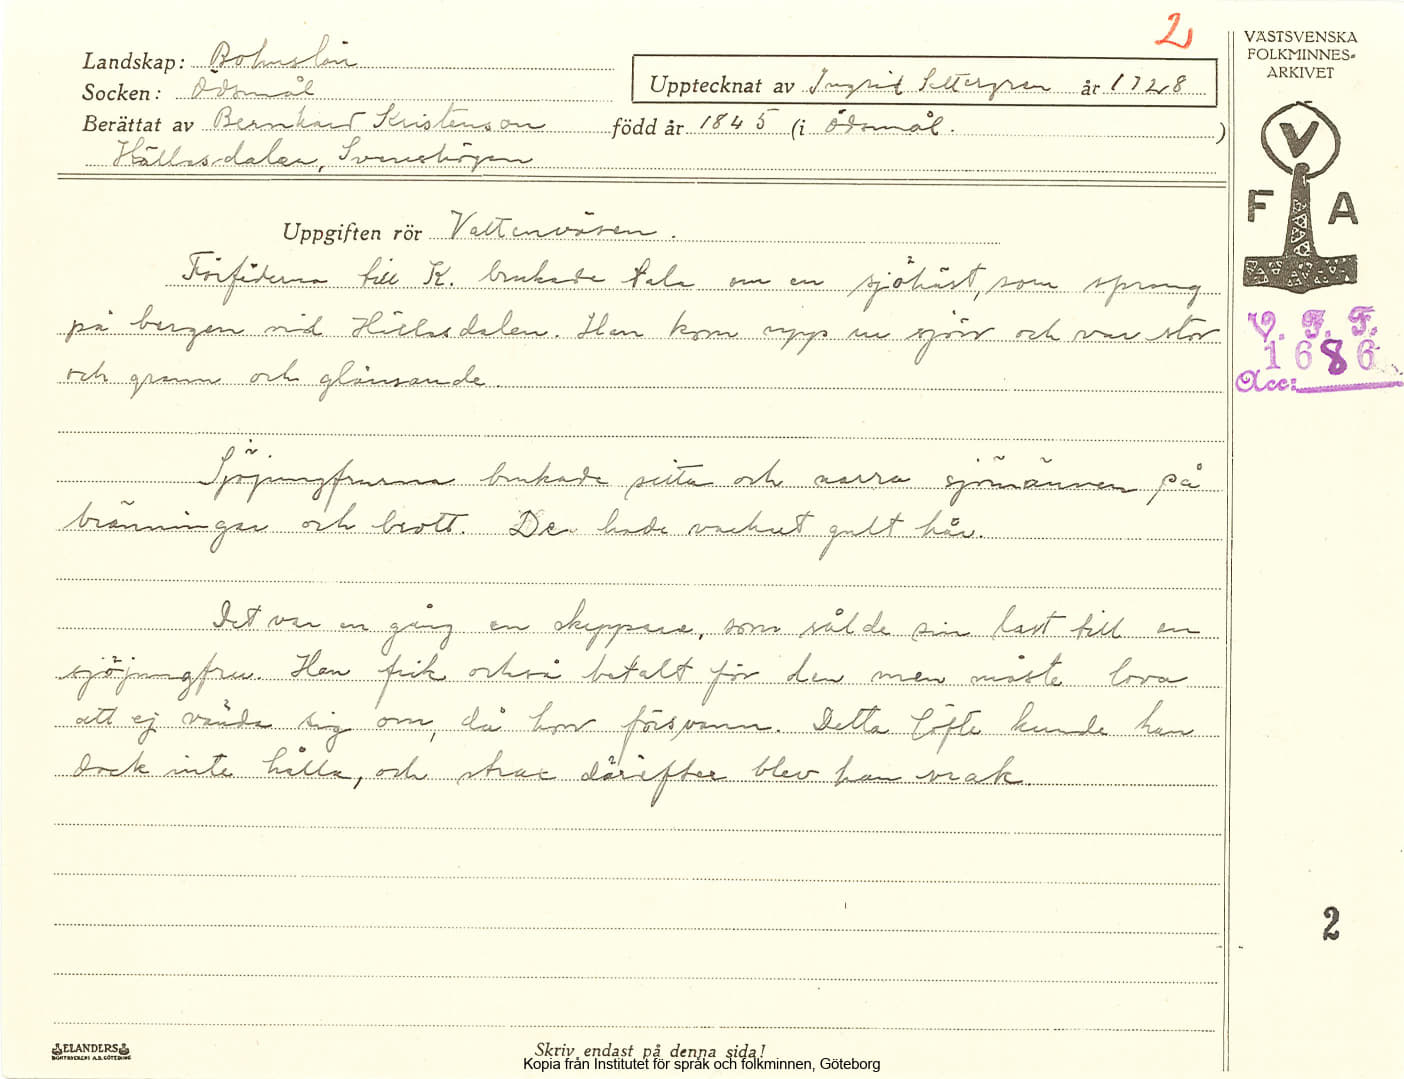 2
Landskap: Bohuslän
Socken: Ödsmål
Upptecknat av Ingrid Settergren år 1928
Berättat av Bernhard Kristenson född år 1845 (i Ödsmål. )
Hällesdalen, Svenshögen
VÄSTSVENSKA
FOLKMINNES-
ARKIVET
V
F A
V. F. F.
1686
Acc:
Uppgiften rör Vattenväsen.
Förfäderna till K. brukade tala om en sjöhäst, som sprang
på bergen vid Hällesdalen. Han kom upp ur sjön och var stor
och grann och glänsande.
Sjöjungfrurna brukade sitta och narra sjömännen på
bränningar och brott. De hade vackert gult hår.
Det var en gång en skeppare, som sålde sin last till en
sjöjungfru. Han fick också betalt för den men måste lova
att ej vända sig om, då hon försvann. Detta löfte kunde han
dock inte hålla, och strax därefter blev han vrak.
2
ELANDERS
BOKTRYCKERI A.B. GÖTEBORG
Skriv endast på denna sida!
Kopia från Institutet för språk och folkminnen, Göteborg